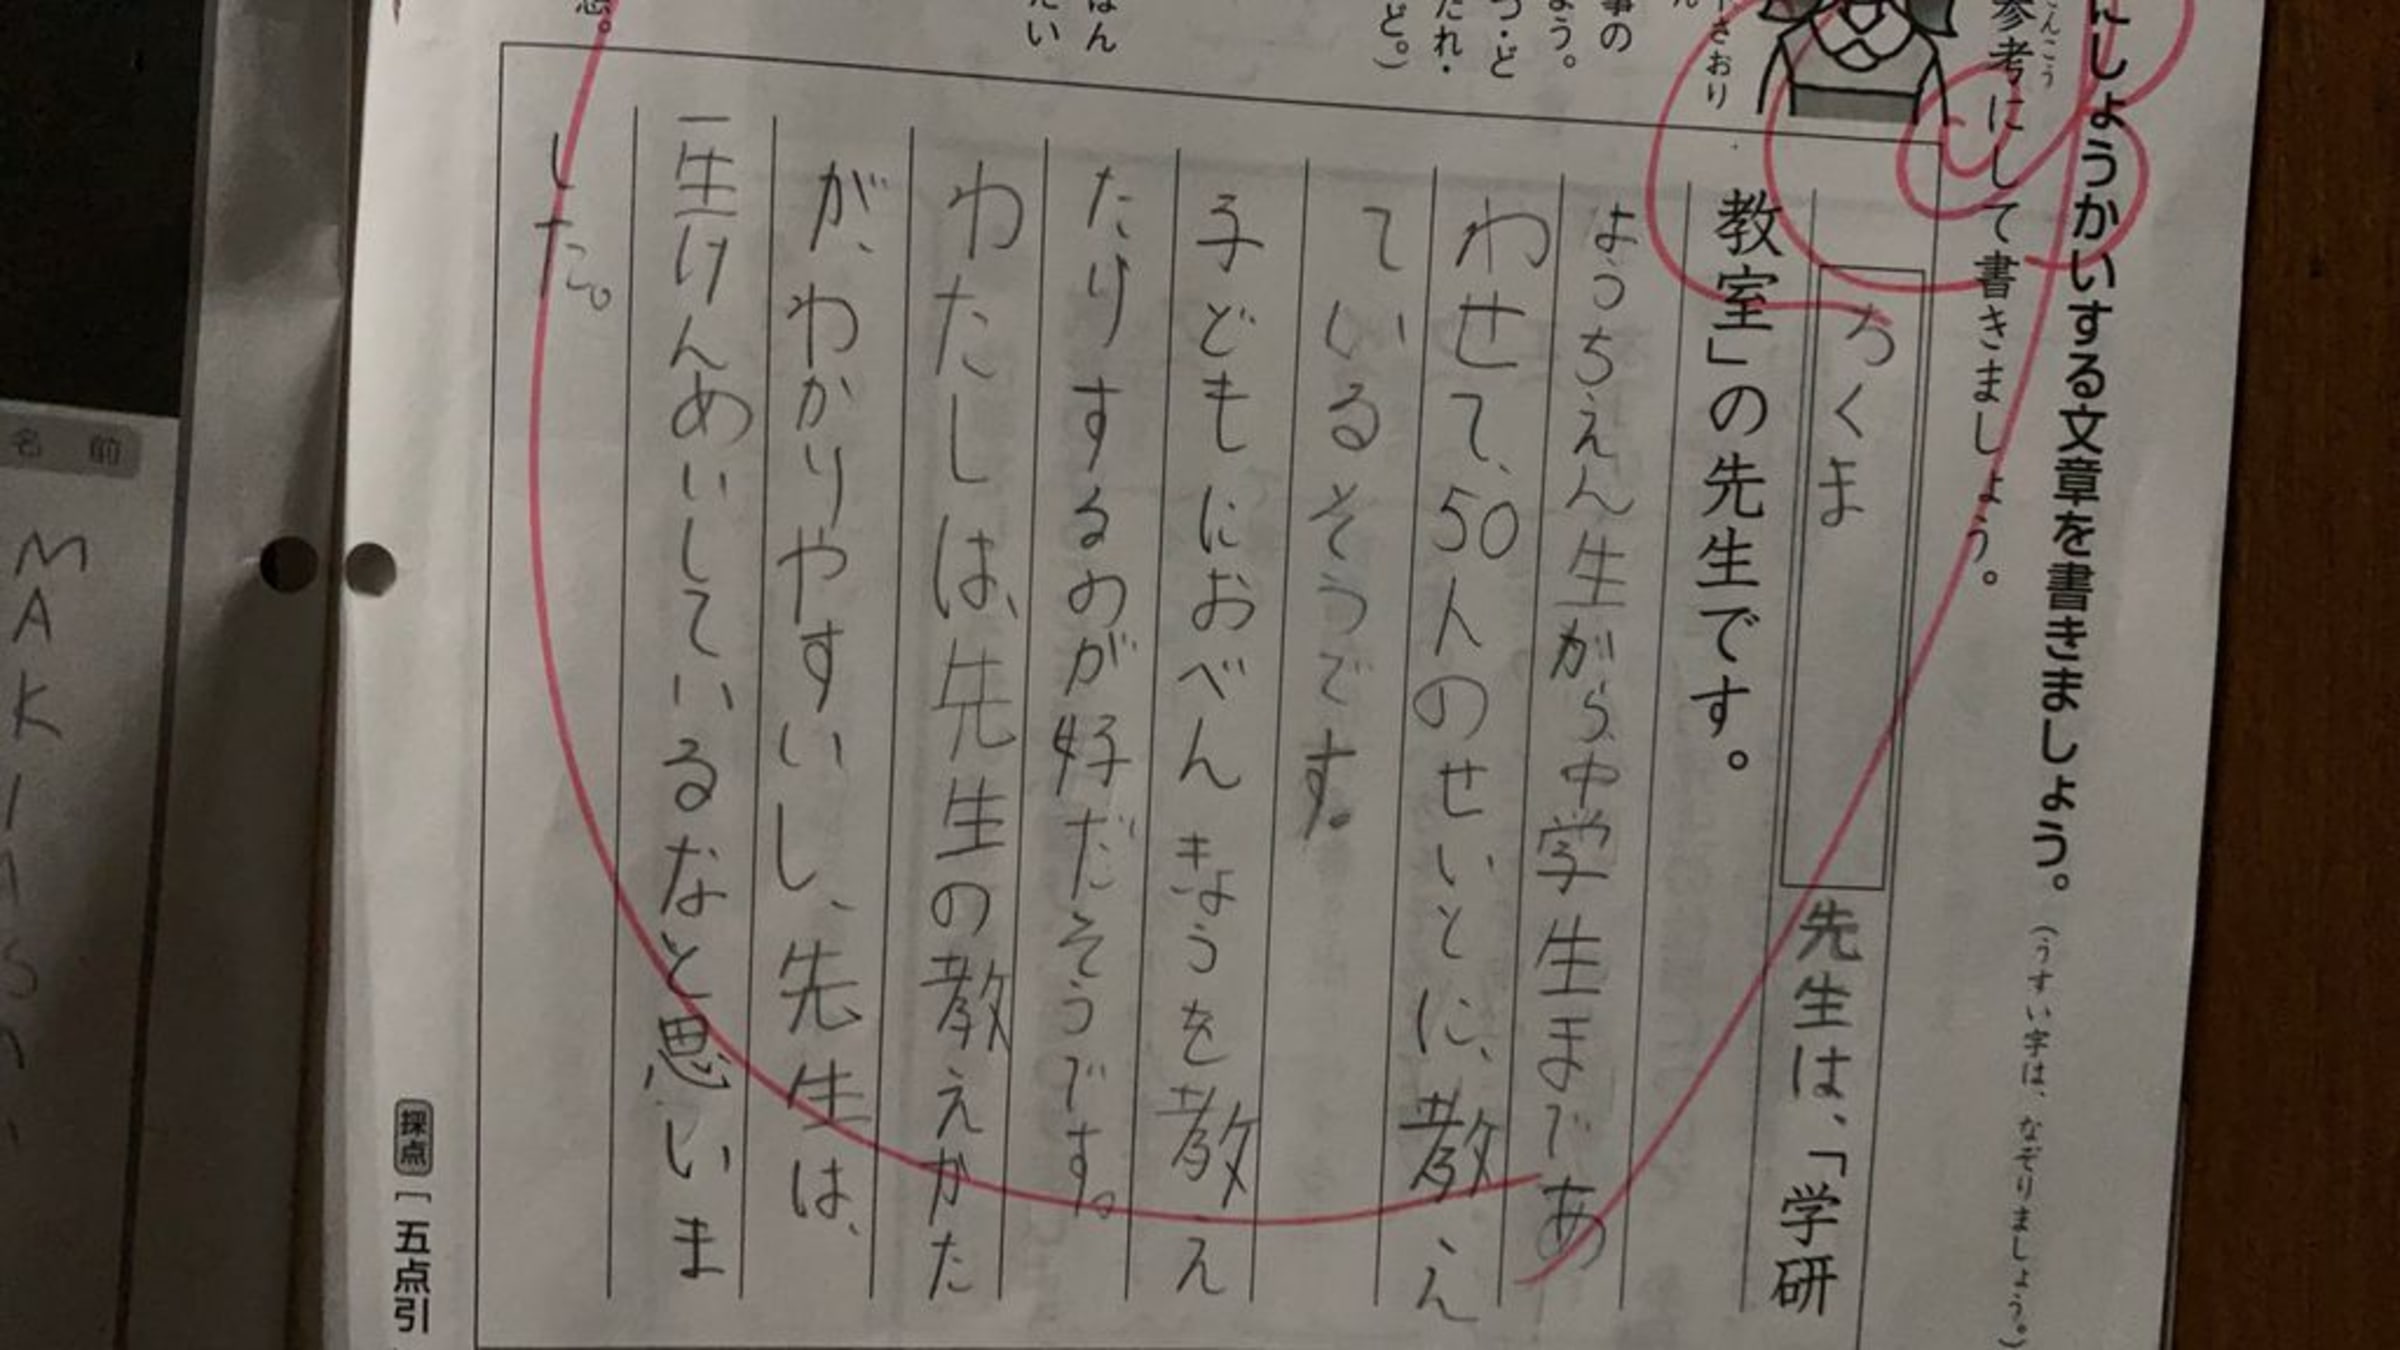 にしょうかいする文章を書きましょう。(うすい字は、なぞりましょう。)
参考にして書きましょう。
さおり
ろくま先生は、「学研
教室」の先生です。
ようちえん生がら、中学生まであ
わせて、50人のせいとに、教え
ているそうです。
子どもにおべんきょうを教え
たりするのが好だそうです。
わたしは、先生の教えかた
が、わかりやすいし、先生は、
一生けんめいしているなと思いま
した。
事の
よう。
つ・ど
だれ・
ど。)
はん
たい
想。
採点
五点引
名前
MAKI